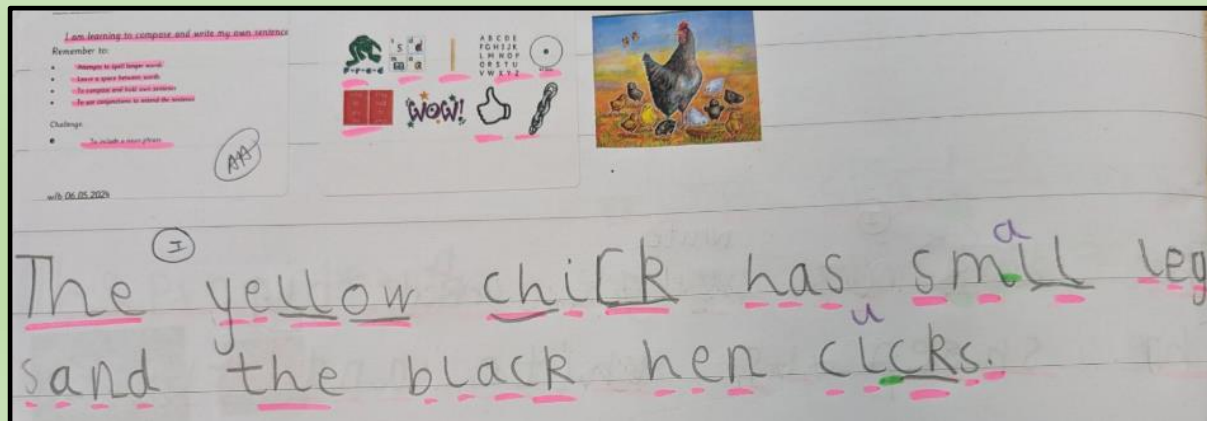 I am learning to compose and write my own sentence
Remember to:
Attempts to spell longer words
Leave a space between words
To compose and hold own sentence
To use conjunctions to extend the sentence
Challenge
To include a noun phrase
w/b 06.05.2024
s d
m a
A B C D E
F G H I J K
L M N O P
Q R S T U
V W X Y Z
WOW!
I
a
The yellow chick has smll leg
u
sand the black hen clcks.